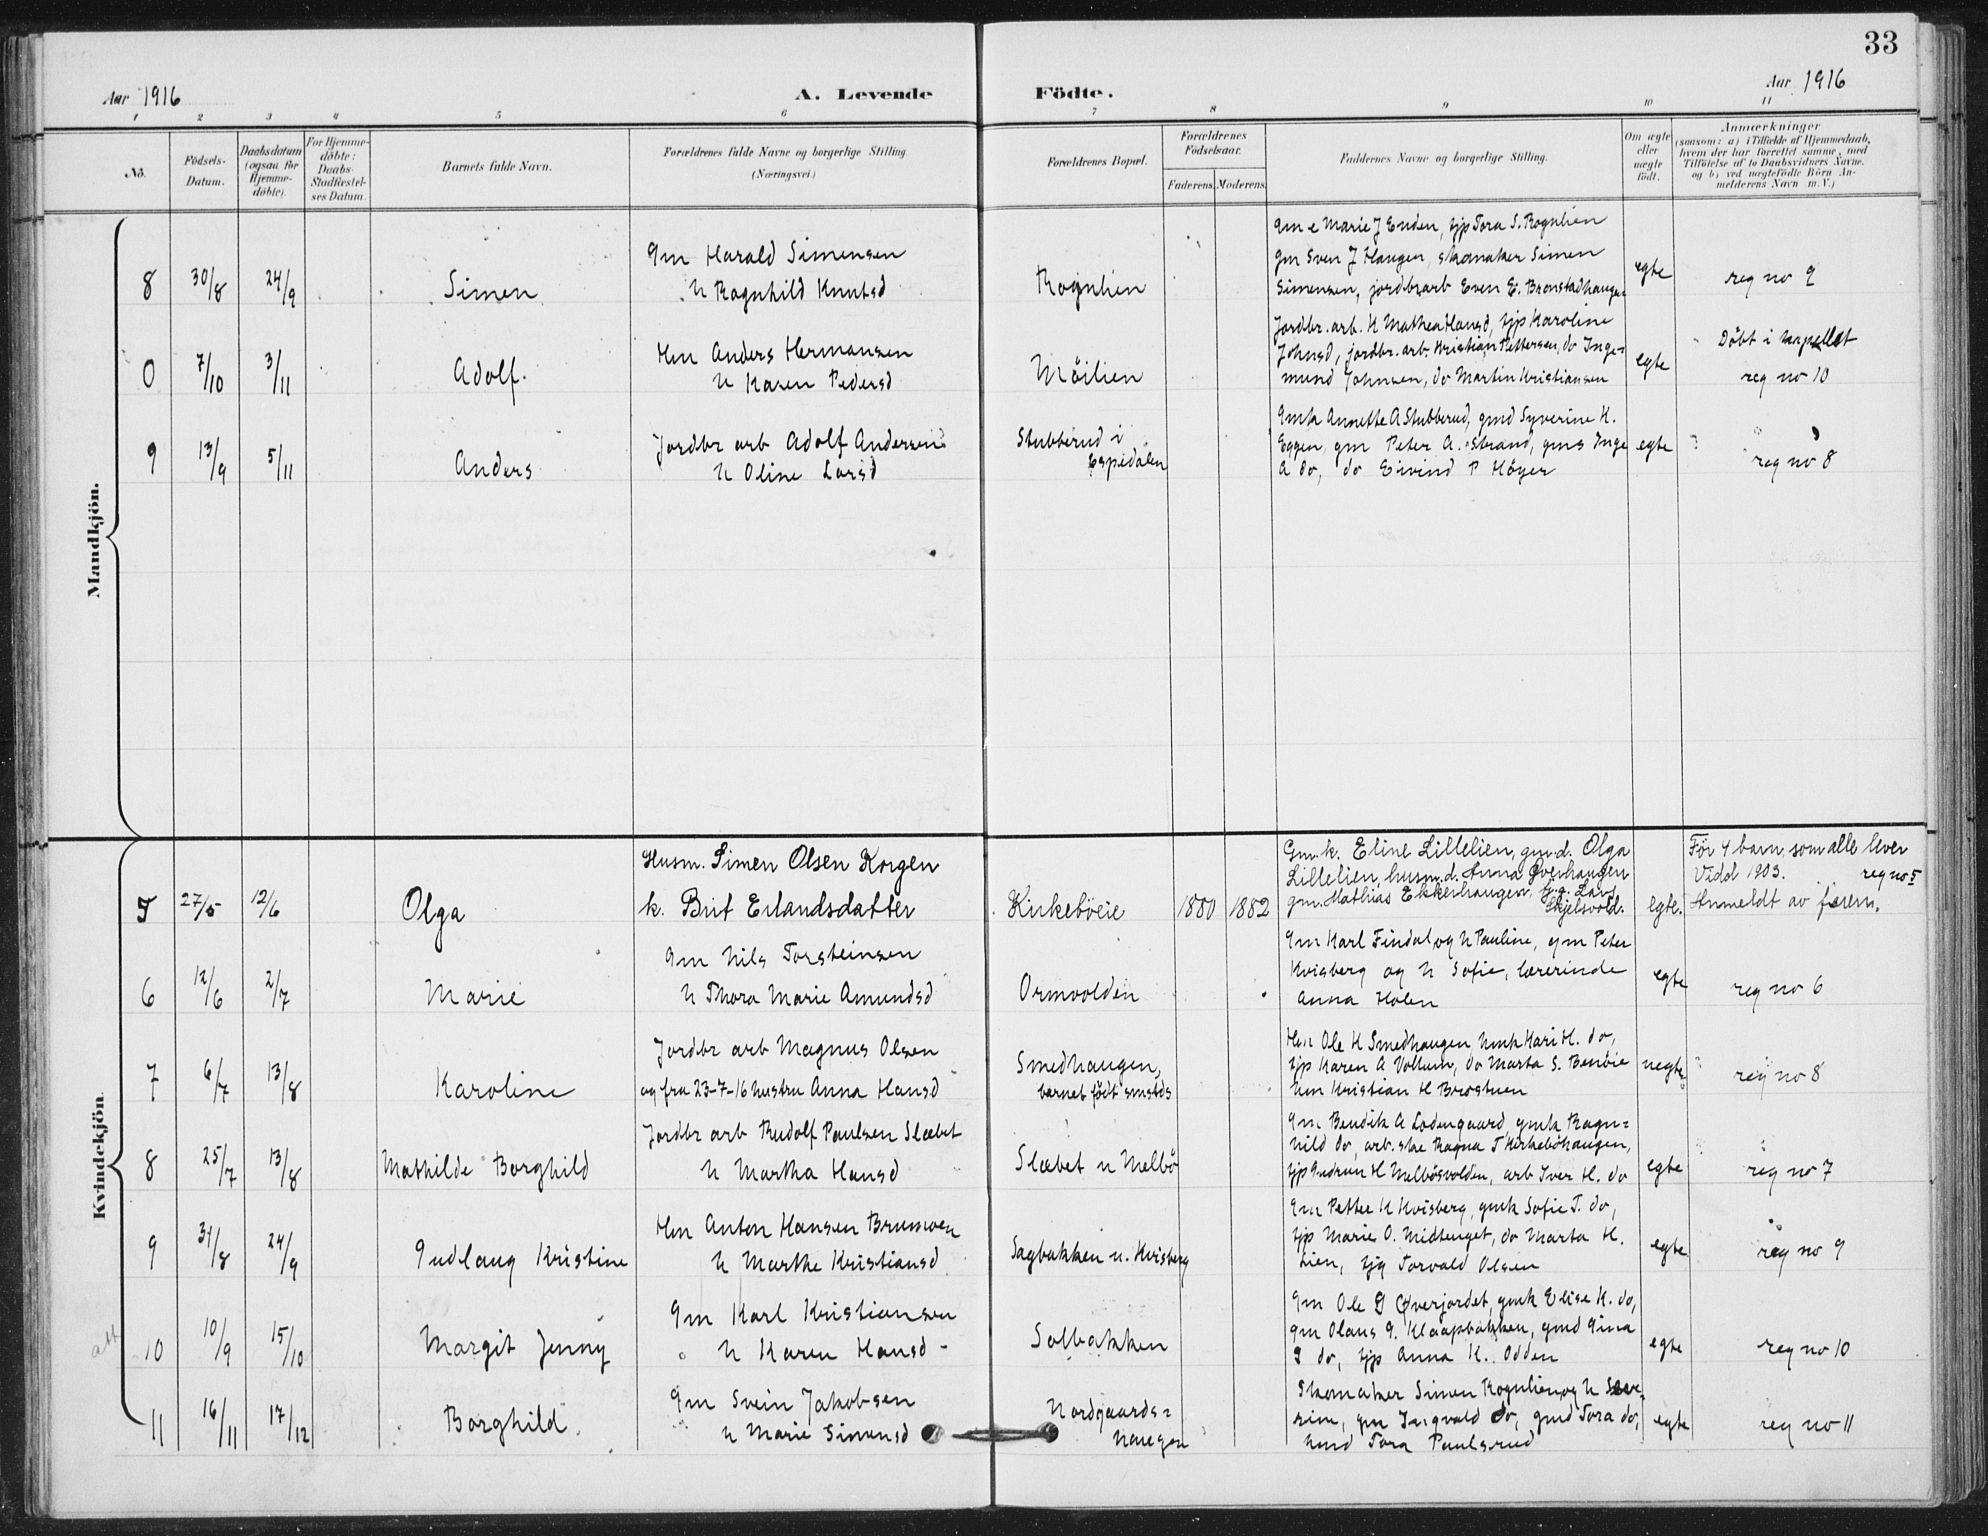 33
Aar 1916
A. Levende
Födte.
Aar 1916
1 2 3 4 5 6 7 8 9 10 11
No.
Födsels-
Datum.
Daabsdatum
(ogsaa for
Hjemme-
döbte).
For Hjemme-
döbte:
Daabs-
Stadfæstel-
ses Datum.
Barnets fulde Navn.
Forældrenes fulde Navne og borgerlige Stilling
(Næringsvei.)
Forældrenes Bopæl.
Forældrenes
Födselsaar.
Faderens. Moderens.
Faddernes Navne og borgerlige Stilling.
Om ægte
eller
uægte
födt.
Anmærkninger
(saasom: a) i Tilfælde af Hjemmedaab,
hvem der har forrettet samme, med
Tilföielse af to Daabsvidners Navne.
og b) ved uægtefödte Börn An-
melderens Navn m. V.)
Mandkjön.
8 30/8 24/9 Simen
Gm Harald Simensen
h Ragnhild Knutsd
Rognlien
Gm e Marie J Enden, pp Tora S. Rognlien
gm Sven J Haugen, skomaker Simen
Simensen, jordbrarb Even E. Bronstadhaugen
egte
reg no 9
0 7/10 3/11 Adolf.
Hm Anders Hermansen
h Karen Pedersd
Möilien
Jordbr. arb. K Mathea Hansd, pp Karoline
Johnsd, jordbr. arb. Kristian Pettersen, do Inge-
mund Johnsen, do Martin Kristiansen
egte
Döbt i kapellet
reg no 10
9 13/9 5/11 Anders
Jordbr arb Adolf Andersen
h Oline Larsd
Stubberud i
Espedalen
Gmk Annette A Stubberud, gmd Syverine K.
Eggen, gm Peter A. Strand, gms Inge
A do, do Eivind P Höyer
egte
" "
reg no 8
Kvindekjön.
5 27/5 12/6 Olga
Husm. Simen Olsen Korgen
k. Birit Erlandsdatter
Kirkebøeie
1880 1882
Gm. k. Eline Lillelien, gm. d. Olga
Lillelien, husm. d. Anna Øverhaugen
gm. Mathias Ekkerhaugen, g.g. Lars
Skjelsvold.
egte.
Før 4 barn, som alle lever
Vidd 1903. reg no 5
Anmeldt av farem.
6 12/6 2/7 Marie
Gm Nils Torsteinsen
h Thora Marie Amundsd
Ormvolden
Gm Karl Findal og h Pauline, gm Peter
Kvisberg og h Sofie, lærerinde
Anna Holen
egte
reg no 6
7 6/7 13/8 Karoline
Jordbr arb Magnus Olsen
og fra 23-7-16 hustru Anna Hansd
Smedhaugen,
barnet født smstds
Hm Ole H Smedhaugen, hmk Kari H. do,
pp Karen A Vollum, do Marta S. Benöie
hm Kristian H Brostuen
uegte
reg no 8
8 25/7 13/8 Mathilde Borghild
Jordbr arb Rudolf Paulsen Slæbet
h Martha Hansd
Slæbet u Melbö
Gm Bendik A Lodengaard, gmk Ragn-
hild do, arb. ske Ragna T Kirkeböhaugen,
pp Gudrun H Melbösvolden, arb Iver H. do
egte
reg no 7
9 31/8 24/9 Gudlaug Kristine
Hm Anton Hansen Brumoen
h Marthe Kristiansd
Sagbakken u. Kvisberg
Gm Petter K Kvisberg, gmk Sofie T. do,
pp Marie O. Midtenget, do Marta H.
Lien, pg Torvald Olsen
egte
reg no 9
10 10/9 15/10 Margit Jenny
Gm Karl Kristiansen
h Karen Hansd
Solbakken
Gm Ole G Øverjordet, gmk Elise K. do,
gm Olaus G. Klaapbakken, gmd Gina
G do, pp Anna K. Odden
egte
reg no 10
11 16/11 17/12 Borghild
Gm Svein Jakobsen
h Marie Simensd
Nordgaards-
haugen
Skomaker Simen Rognlien og h Seve-
rine, gm Ingvald do, gmd Tora do,
hmd Tora Paulsrud
egte
reg no 11